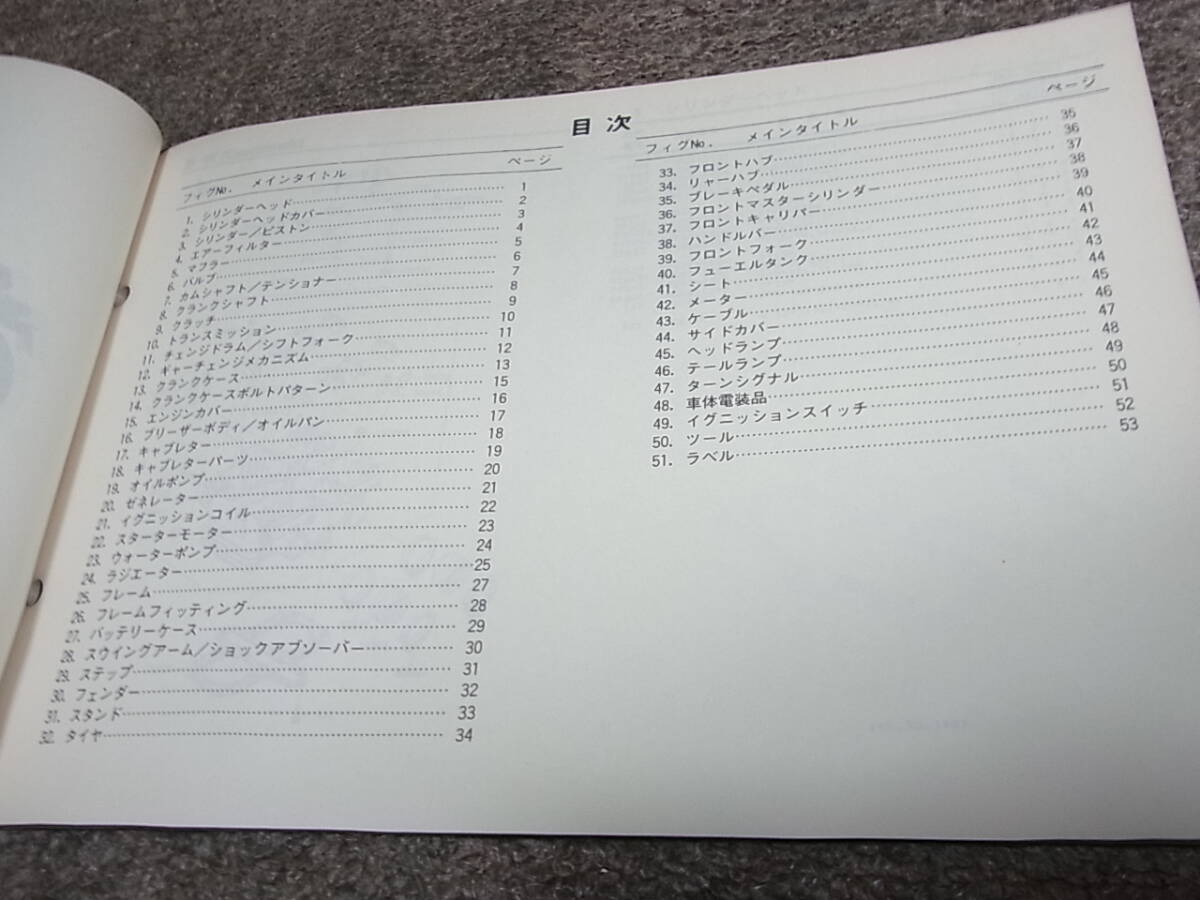 目次
フィグNo. メインタイトル ページ
1. シリンダーヘッド 1
2. シリンダーヘッドカバー 2
3. シリンダー/ピストン 3
4. エアーフィルター 4
5. マフラー 5
6. バルブ 6
7. カムシャフト/テンショナー 7
8. クランクシャフト 8
9. クラッチ 9
10. トランスミッション 10
11. チェンジドラム/シフトフォーク 11
12. ギャーチェンジメカニズム 12
13. クランクケース 13
14. クランクケースボルトパターン 15
15. エンジンカバー 16
16. ブリーザーボディ/オイルパン 17
17. キャブレター 18
18. キャブレターパーツ 19
19. オイルポンプ 20
20. ゼネレーター 21
21. イグニッションコイル 22
22. スターターモーター 23
23. ウォーターポンプ 24
24. ラジエーター 25
25. フレーム 27
26. フレームフィッティング 28
27. バッテリーケース 29
28. スウイングアーム/ショックアブソーバー 30
29. ステップ 31
30. フェンダー 32
31. スタンド 33
32. タイヤ 34
フィグNo. メインタイトル ページ
33. フロントハブ 35
34. リャーハブ 36
35. ブレーキペダル 37
36. フロントマスターシリンダー 38
37. フロントキャリパー 39
38. ハンドルバー 40
39. フロントフォーク 41
40. フューエルタンク 42
41. シート 43
42. メーター 44
43. ケーブル 45
44. サイドカバー 46
45. ヘッドランプ 47
46. テールランプ 48
47. ターンシグナル 49
48. 車体電装品 50
49. イグニッションスイッチ 51
50. ツール 52
51. ラベル 53